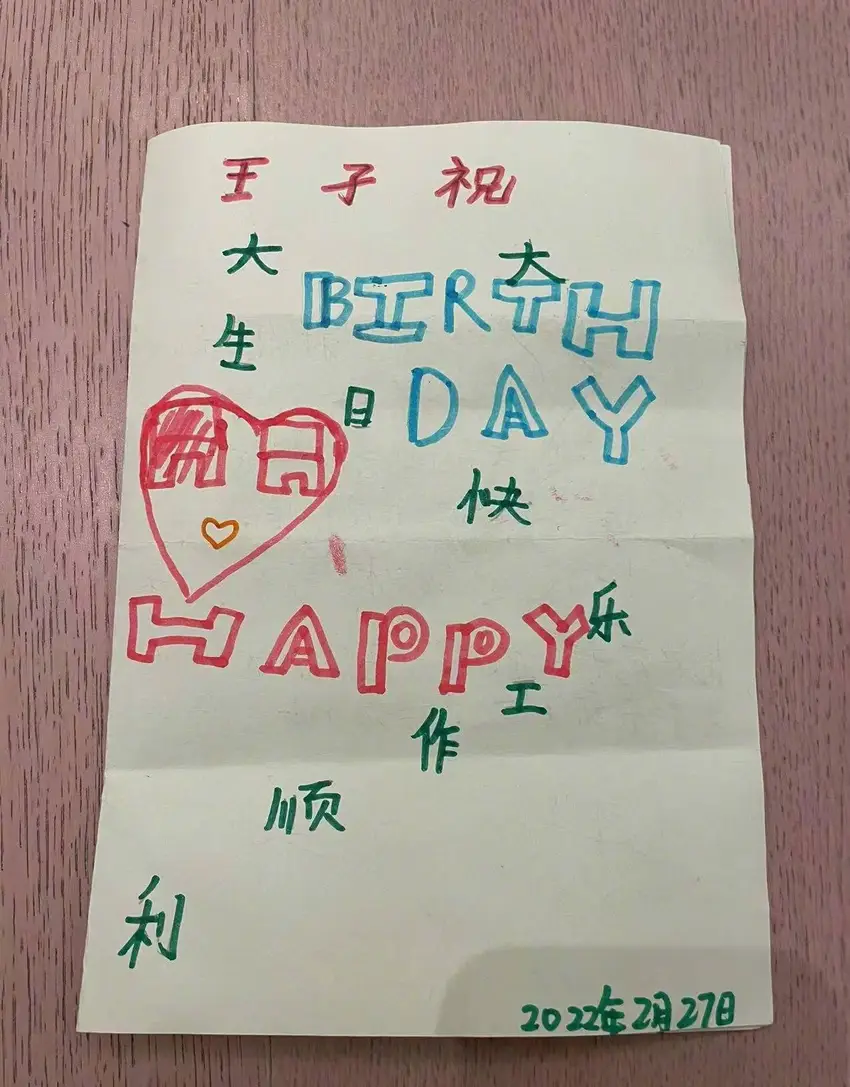 王子祝
大大
BIRTH
生
日
DAY
快
HAPPY
乐
工
作
顺
利
2022年2月27日